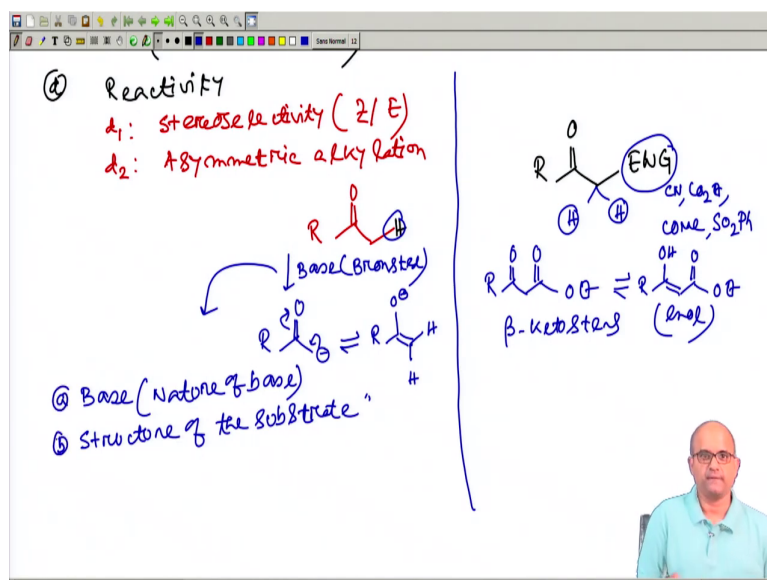 Sans Normal 12
(d) Reactivity
d1: Stereoselectivity (Z/E)
d2: Asymmetric alkylation
O
R H
Base (Bronsted)
O O⊖
R ⊖ ⇌ R H
H
(a) Base (Nature of base)
(b) Structure of the substrate
O
R EWG
H H
CN, CO2Et,
COMe, SO2Ph
O O OH O
R OEt ⇌ R OEt
β-Ketosters (enol)